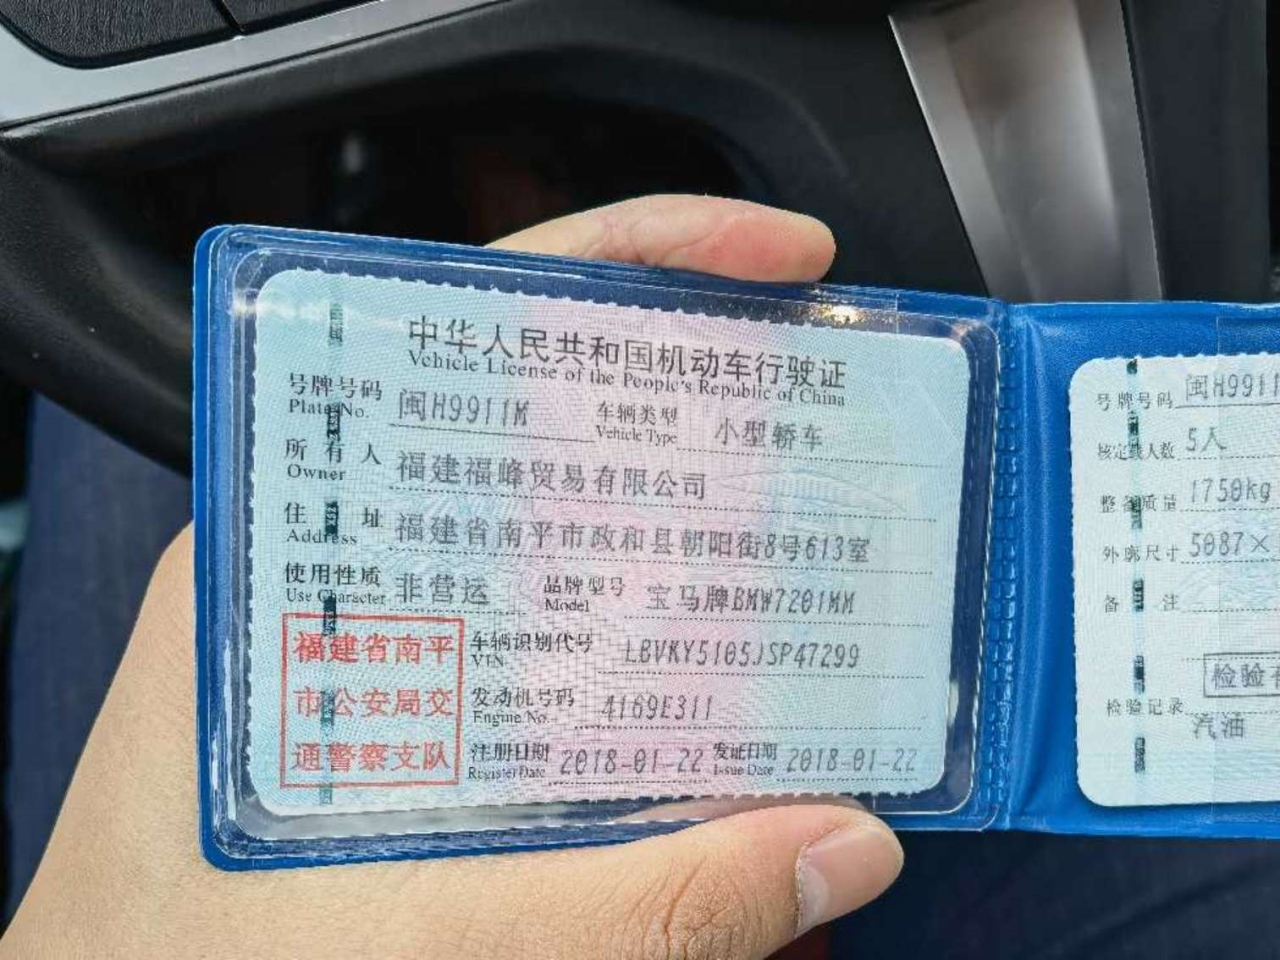 中华人民共和国机动车行驶证
Vehicle License of the People's Republic of China
号牌号码 闽H9911M 车辆类型 小型轿车
Plate No. Vehicle Type
所有人 福建福峰贸易有限公司
Owner
住址 福建省南平市政和县朝阳街8号613室
Address
使用性质 非营运 品牌型号 宝马牌BMW7201MM
Use Character Model
福建省南平
市公安局交
通警察支队
车辆识别代号 LBVKY5105JSP47299
VIN
发动机号码 4169E311
Engine No.
注册日期 2018-01-22 发证日期 2018-01-22
Register Date Issue Date
号牌号码 闽H991
核定载人数 5人
整备质量 1750kg
外廓尺寸 5087×
备注
检验
检验记录
汽油